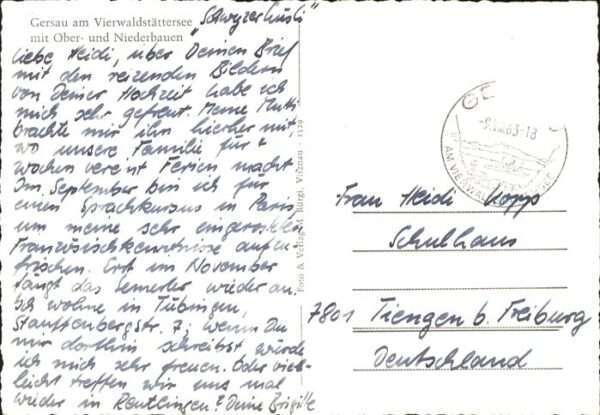 Gersau am Vierwaldstättersee
mit Ober- und Niederbauen
"Schwyzerhüsli"
Liebe Heidi, über Deinen Brief
mit den reizenden Bildern
von Deiner Hochzeit habe ich
mich sehr gefreut. Meine Mutti
brachte mir ihn hierher mit,
wo unsere Familie für
Wochen vereint Ferien macht
Im September bin ich für
einen Sprachkursus in Paris,
um meine sehr eingerosteten
Französischkenntnisse aufzu-
frischen. Erst im November
fängt das Semester wieder an.
Ich wohne in Tübingen,
Stauffenbergstr. 7; wenn Du
mir dorthin schreibst würde
ich mich sehr freuen. Oder viel-
leicht treffen wir uns mal
wieder in Reutlingen? Deine Brigitte
Foto & Verlag M. Bürgi, Vitznau
63-18
AM VIERWALD
Frau Heidi Kopp
Schulhaus
7801 Tiengen b. Freiburg
Deutschland